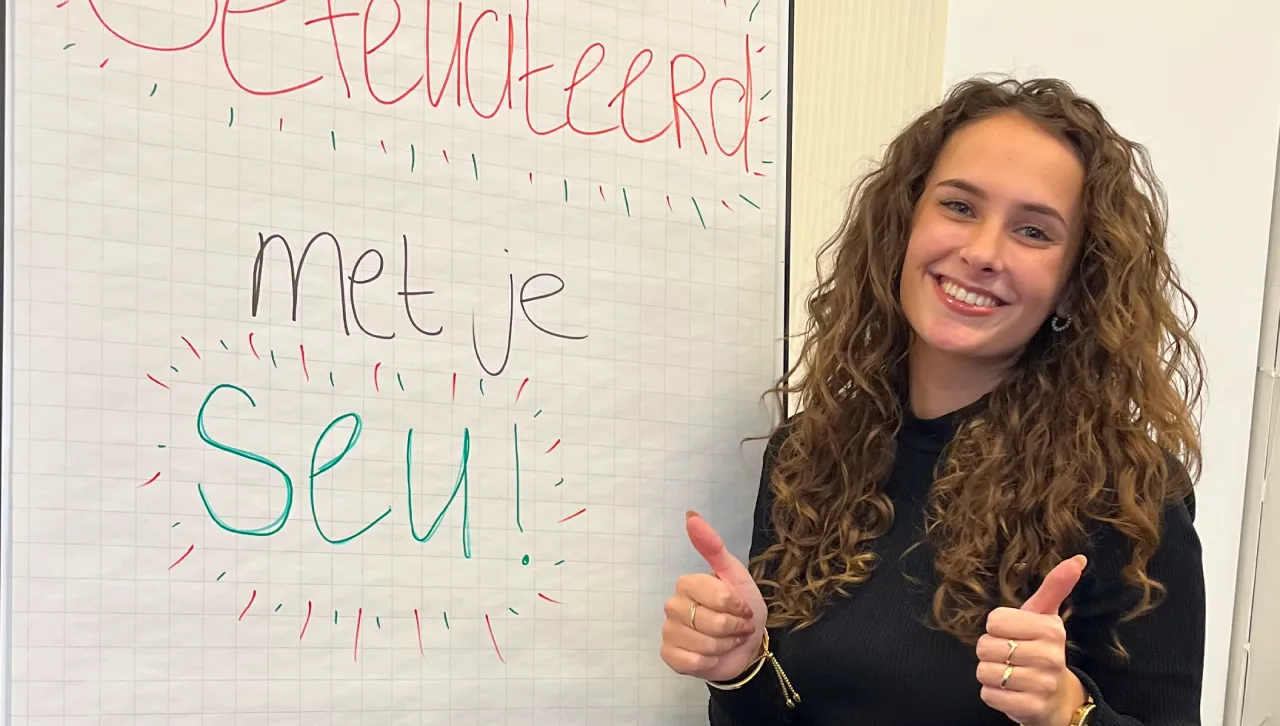 Gefeliciteerd
met je
Seu!